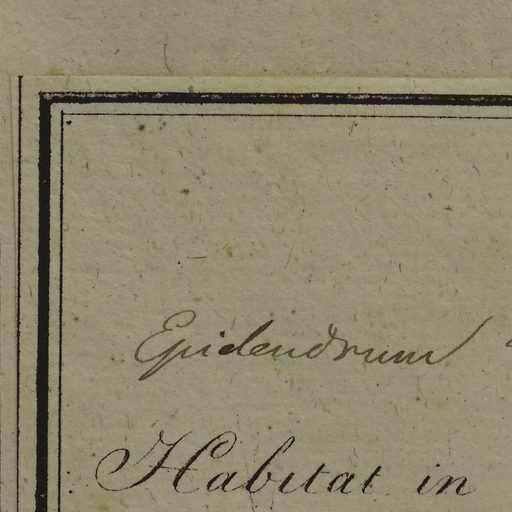 Epidendrum
Habitat in